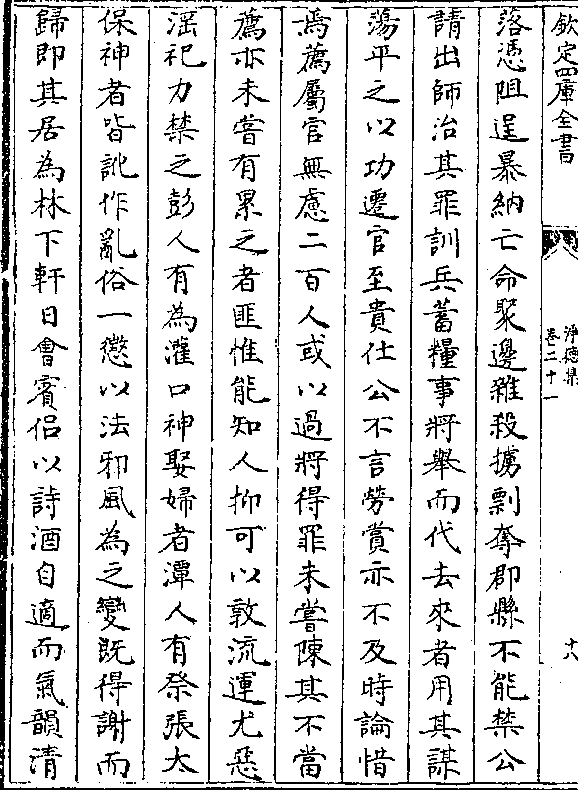 欽定四庫全書
淨德集
卷二十一
十八
落憑阻逞暴納亡命聚邊雜殺擄剽奪郡縣不能禁公
請出師治其罪訓兵蓄糧事將舉而代去來者用其謀
蕩平之以功遷官至貴仕公不言勞賞亦不及時論惜
焉薦屬官無慮二百人或以過將得罪未嘗陳其不當
薦亦未嘗有累之者匪惟能知人抑可以敦流運尤惡
淫祀力禁之彭人有為灌口神娶婦者潭人有祭張太
保神者皆訛作亂俗一懲以法邪風為之變既得謝而
歸即其居為林下軒日會賓侣以詩酒自適而氣韻清